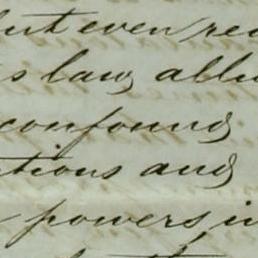 but even rea
s law, allu
confound
ations and
powers in